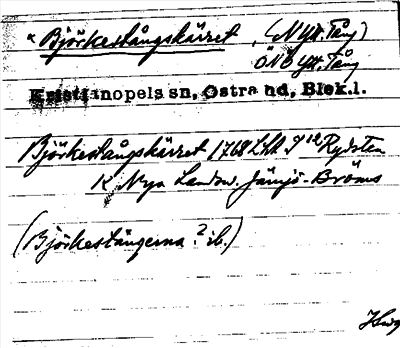 * Björkestångskärret, (N Ytt. Tång)
ÖNÖ Ytt. Tång
Kristianopels sn, Östra hd, Blek.l.
Björkestångskärret 1768 Lhh J 12 Rydsten
K Nya Landsv. Jämjö-Bröms
(Björkestångerna? ib.)